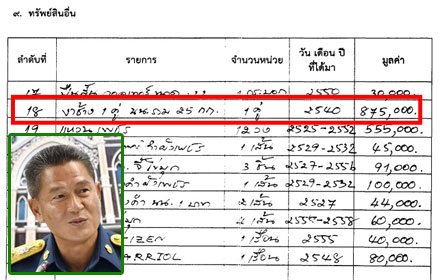 ๙. ทรัพย์สินอื่น
ลำดับที่ รายการ จำนวนหน่วย วัน เดือน ปี ที่ได้มา มูลค่า
17 ปืนสั้น 1 กระบอก 2550 30,000.
18 งาช้าง 1 คู่ นน.รวม 25 กก. 1 คู่ 2540 875,000.
19 แหวนเพชร 12 วง 2525-2552 555,000.
1 เส้น 2529-2532 45,000.
3 ชิ้น 2527-2556 91,000.
1 เส้น 2529-2532 100,000.
1 บาท 2 เส้น 2527 44,000.
เส้น 2555-2558 60,000.
IZEN 1 เรือน 2555 40,000.
ARRIOL 1 เรือน 2548 80,000.